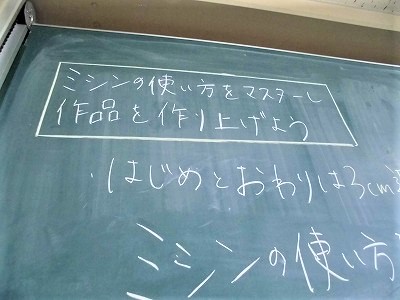 ミシンの使い方をマスターし
作品を作り上げよう
・はじめとおわりは3cm
ミシンの使い方